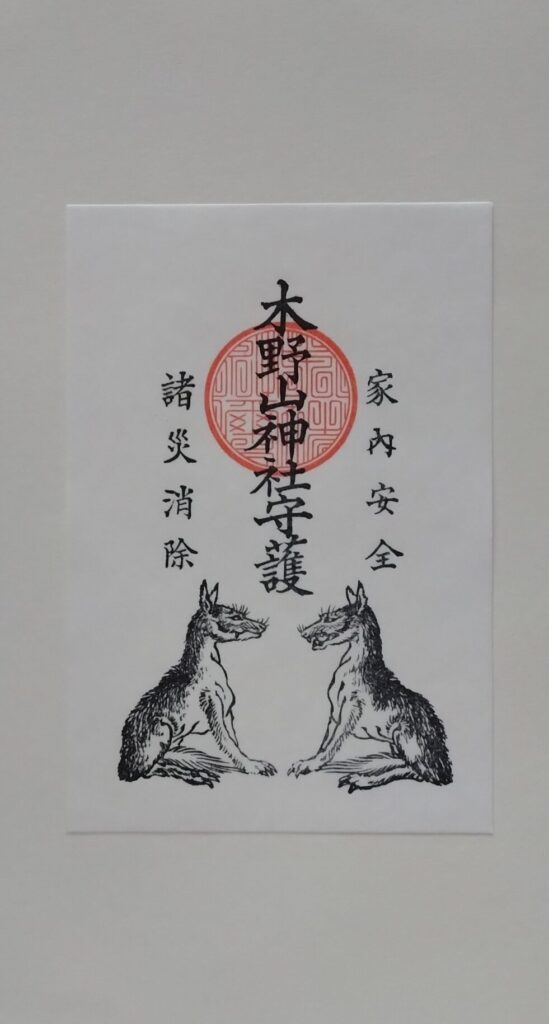 家内安全
木野山神社守護
諸災消除